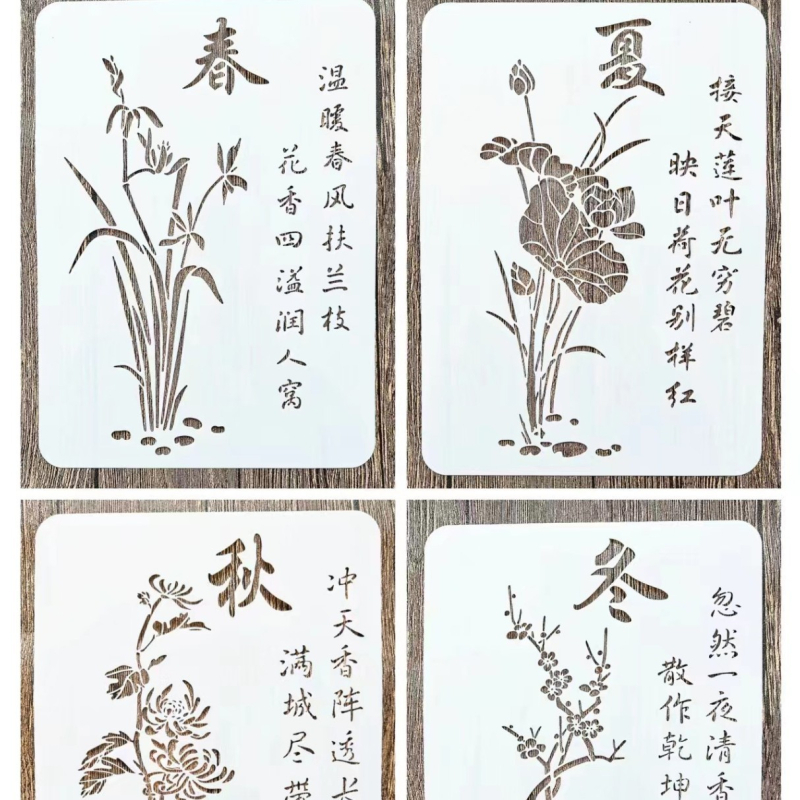 春
温暖春风扶兰枝
花香四溢润人窝
夏
接天莲叶无穷碧
映日荷花别样红
秋
冲天香阵透长
满城尽带
冬
忽然一夜清香
散作乾坤